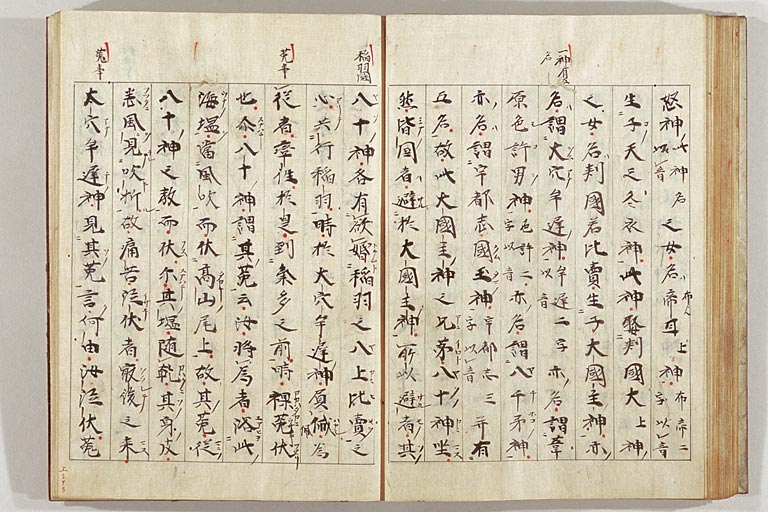 怒神此神名以音之女名帝耳上神布帝二字以音
生子天之冬衣神此神娶刺國大上神
之女名刺國若比賣生子大國主神亦
名謂大穴牟遅神牟遅二字以音亦名謂葦
原色許男神色許二字以音亦名謂八千矛神
亦名謂宇都志國玉神宇都志三字以音并有
五名故此大國主神之兄弟八十神坐
然皆國者避於大國主神所以避者其
八十神各有欲婚稲羽之八上比賣之
心共行稲羽時於大穴牟遅神負俻為
従者率往於是到氣多之前時裸菟伏
也尒八十神謂其菟云汝将為者浴此
海塩當風吹而伏髙山尾上故其菟従
八十神之教而伏尒其塩随乾其身皮
悉風見吹拆故痛苦泣伏者最後之来
大穴牟遅神見其菟言何由汝泣伏菟